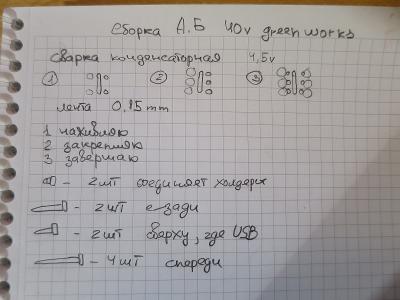 Сборка А.Б 40v greenworks
сварка конденсаторная 4,5v
1 2 3
лента 0,15 mm
1 наживляю
2 закрепляю
3 завершаю
– 2 шт соединяет холдеры
– 2 шт сзади
– 2 шт сверху, где USB
– 4 шт спереди